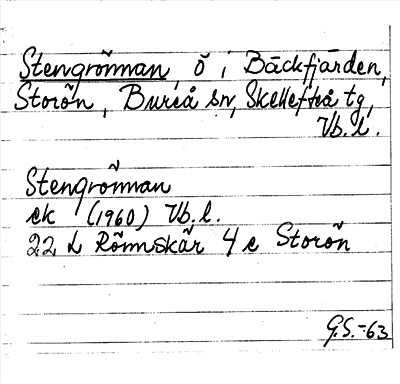 Stengrönnan, ö i Bäckfjärden,
Storön, Bureå sn, Skellefteå tg,
Vb. l.
Stengrönnan
ek (1960) Vb. l.
22 L Rönnskär 4 e Storön
G.S.-63